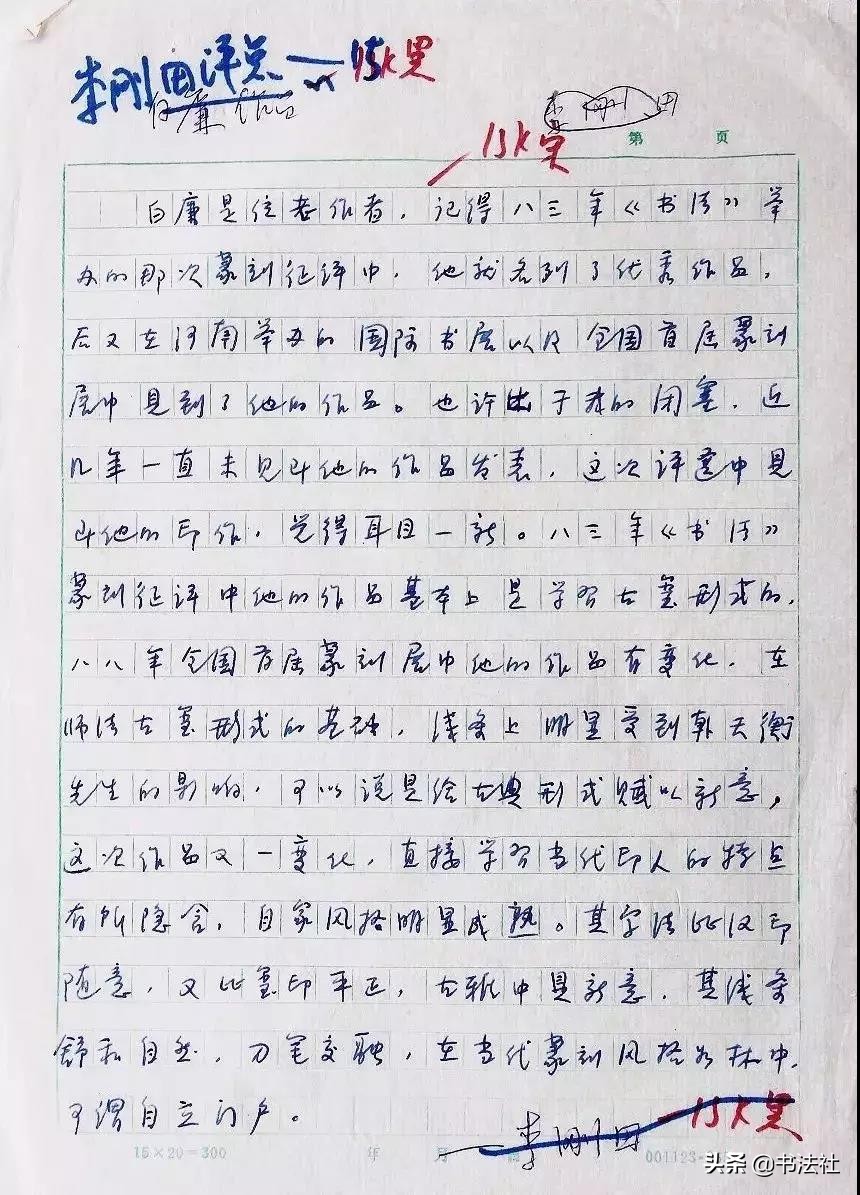 李刚田评点 15K黑
白廉作品
李刚田
15K黑
第 页
白廉是位老作者，记得八三年《书法》举
办的那次篆刻征评中，他就名列了优秀作品，
后又在河南举办的国际书展以及全国首届篆刻
展中见到了他的作品。也许出于我的闭塞，近
几年一直未见到他的作品发表，这次评选中见
到他的印作，觉得耳目一新。八三年《书法》
篆刻征评中他的作品基本上是学习古玺形式的，
八八年全国首届篆刻展中他的作品有变化，在
师法古玺形式的基础，线条上明显受到韩天衡
先生的影响，可以说是给古典形式赋以新意，
这次作品又一变化，直接学习当代印人的特点
有所隐含，自家风格明显成熟。其字法比汉印
随意，又比玺印平正，古雅中具新意，其线条
舒和自然，刀笔交融，在当代篆刻风格如林中，
可谓自立门户。
李刚田 15K黑
15×20=300 年 月 001123
头条 @书法社